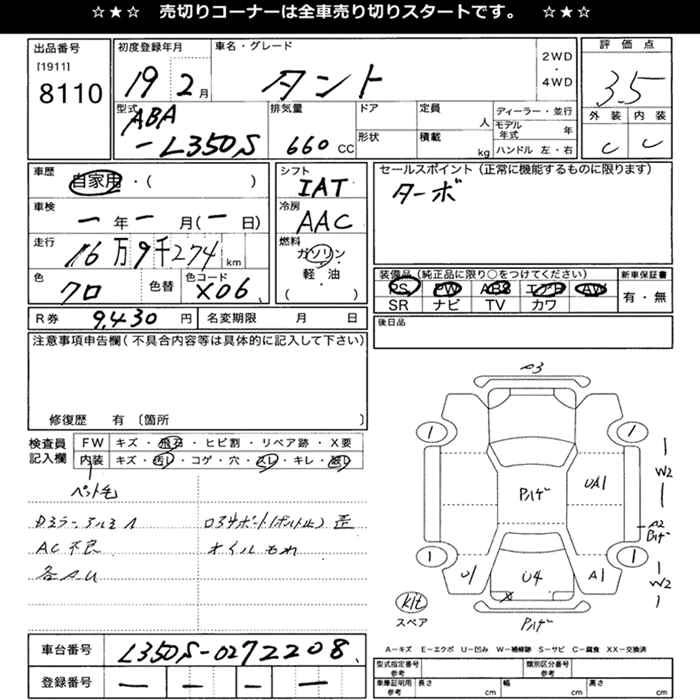 ☆★☆ 売切りコーナーは全車売り切りスタートです。 ☆★☆
出品番号
[1911]
8110
初度登録年月
19 2月
車名・グレード
タント
2WD
・
4WD
評価点
3.5
外装 内装
C C
型式
ABA
-L350S
排気量
660 CC
ドア
形状
定員 人
積載 kg
ディーラー・並行
モデル年式 年
ハンドル 左・右
車歴
自家用・( )
車検
一年一月(一日)
走行
16万9千274km
色
クロ
色替
色コード
X06
シフト
IAT
冷房
AAC
燃料
ガソリン
軽・油
( )
セールスポイント(正常に機能するものに限ります)
ターボ
装備品(純正品に限り○をつけてください)
PS PW ABS エアB AW
SR ナビ TV カワ
新車保証書
有・無
R券 9,430円
名変期限 月 日
後日品
注意事項申告欄(不具合内容等は具体的に記入して下さい)
修復歴 有〔箇所 〕
検査員
記入欄
FW キズ・飛石・ヒビ割・リペア跡・X要
内装 キズ・汚レ・コゲ・穴・スレ・キレ・
ペット毛
AC不良
各A.U
オイルモレ
A3
1 1
W2
UA1
A2
1 1
U1 U4 A1
W2
X
kit
スペア
A−キズ E−エクボ U−凹み W−補修跡 S−サビ C−腐食 XX−交換済
車台番号 L350S-0272208
登録番号 － － － －
型式指定番号
参考
類別区分番号
参考
車庫証明用
参考
長さ cm 幅 cm 高さ cm